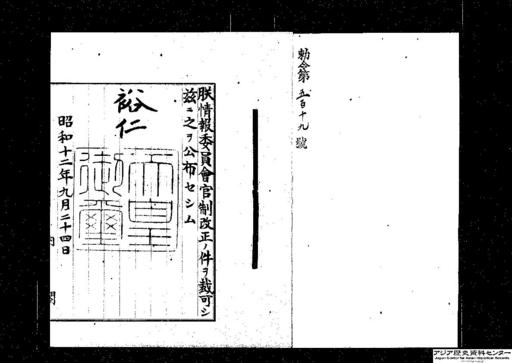 勅令第五百十九號
朕情報委員會官制改正ノ件ヲ裁可シ
茲ニ之ヲ公布セシム
裕仁
天皇御璽
昭和十二年九月二十四日
内閣
アジア歴史資料センター
Japan Center for Asian Historical Records